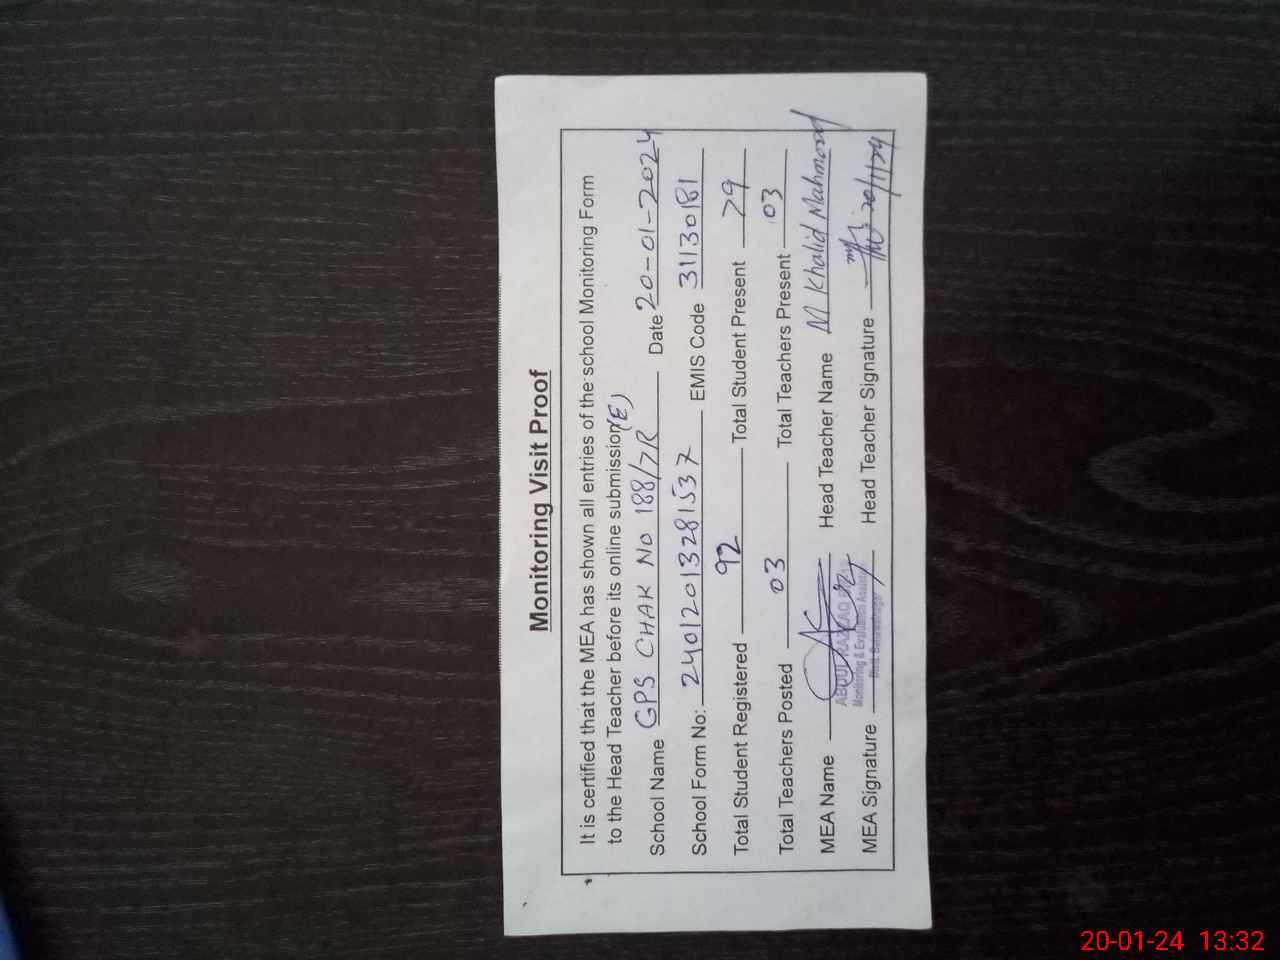 Monitoring Visit Proof
It is certified that the MEA has shown all entries of the school Monitoring Form
to the Head Teacher before its online submission (E)
School Name GPS CHAK No 188/7R Date 20-01-2024
School Form No: 24012013281537 EMIS Code 31130181
Total Student Registered 92 Total Student Present 79
Total Teachers Posted 03 Total Teachers Present 03
MEA Name Head Teacher Name M Khalid Mahmood
ABDUL RAZZAQ
Monitoring & Evaluation Assistant
Distt. Bahawalnagar
MEA Signature Head Teacher Signature 20/1/24
20-01-24 13:32